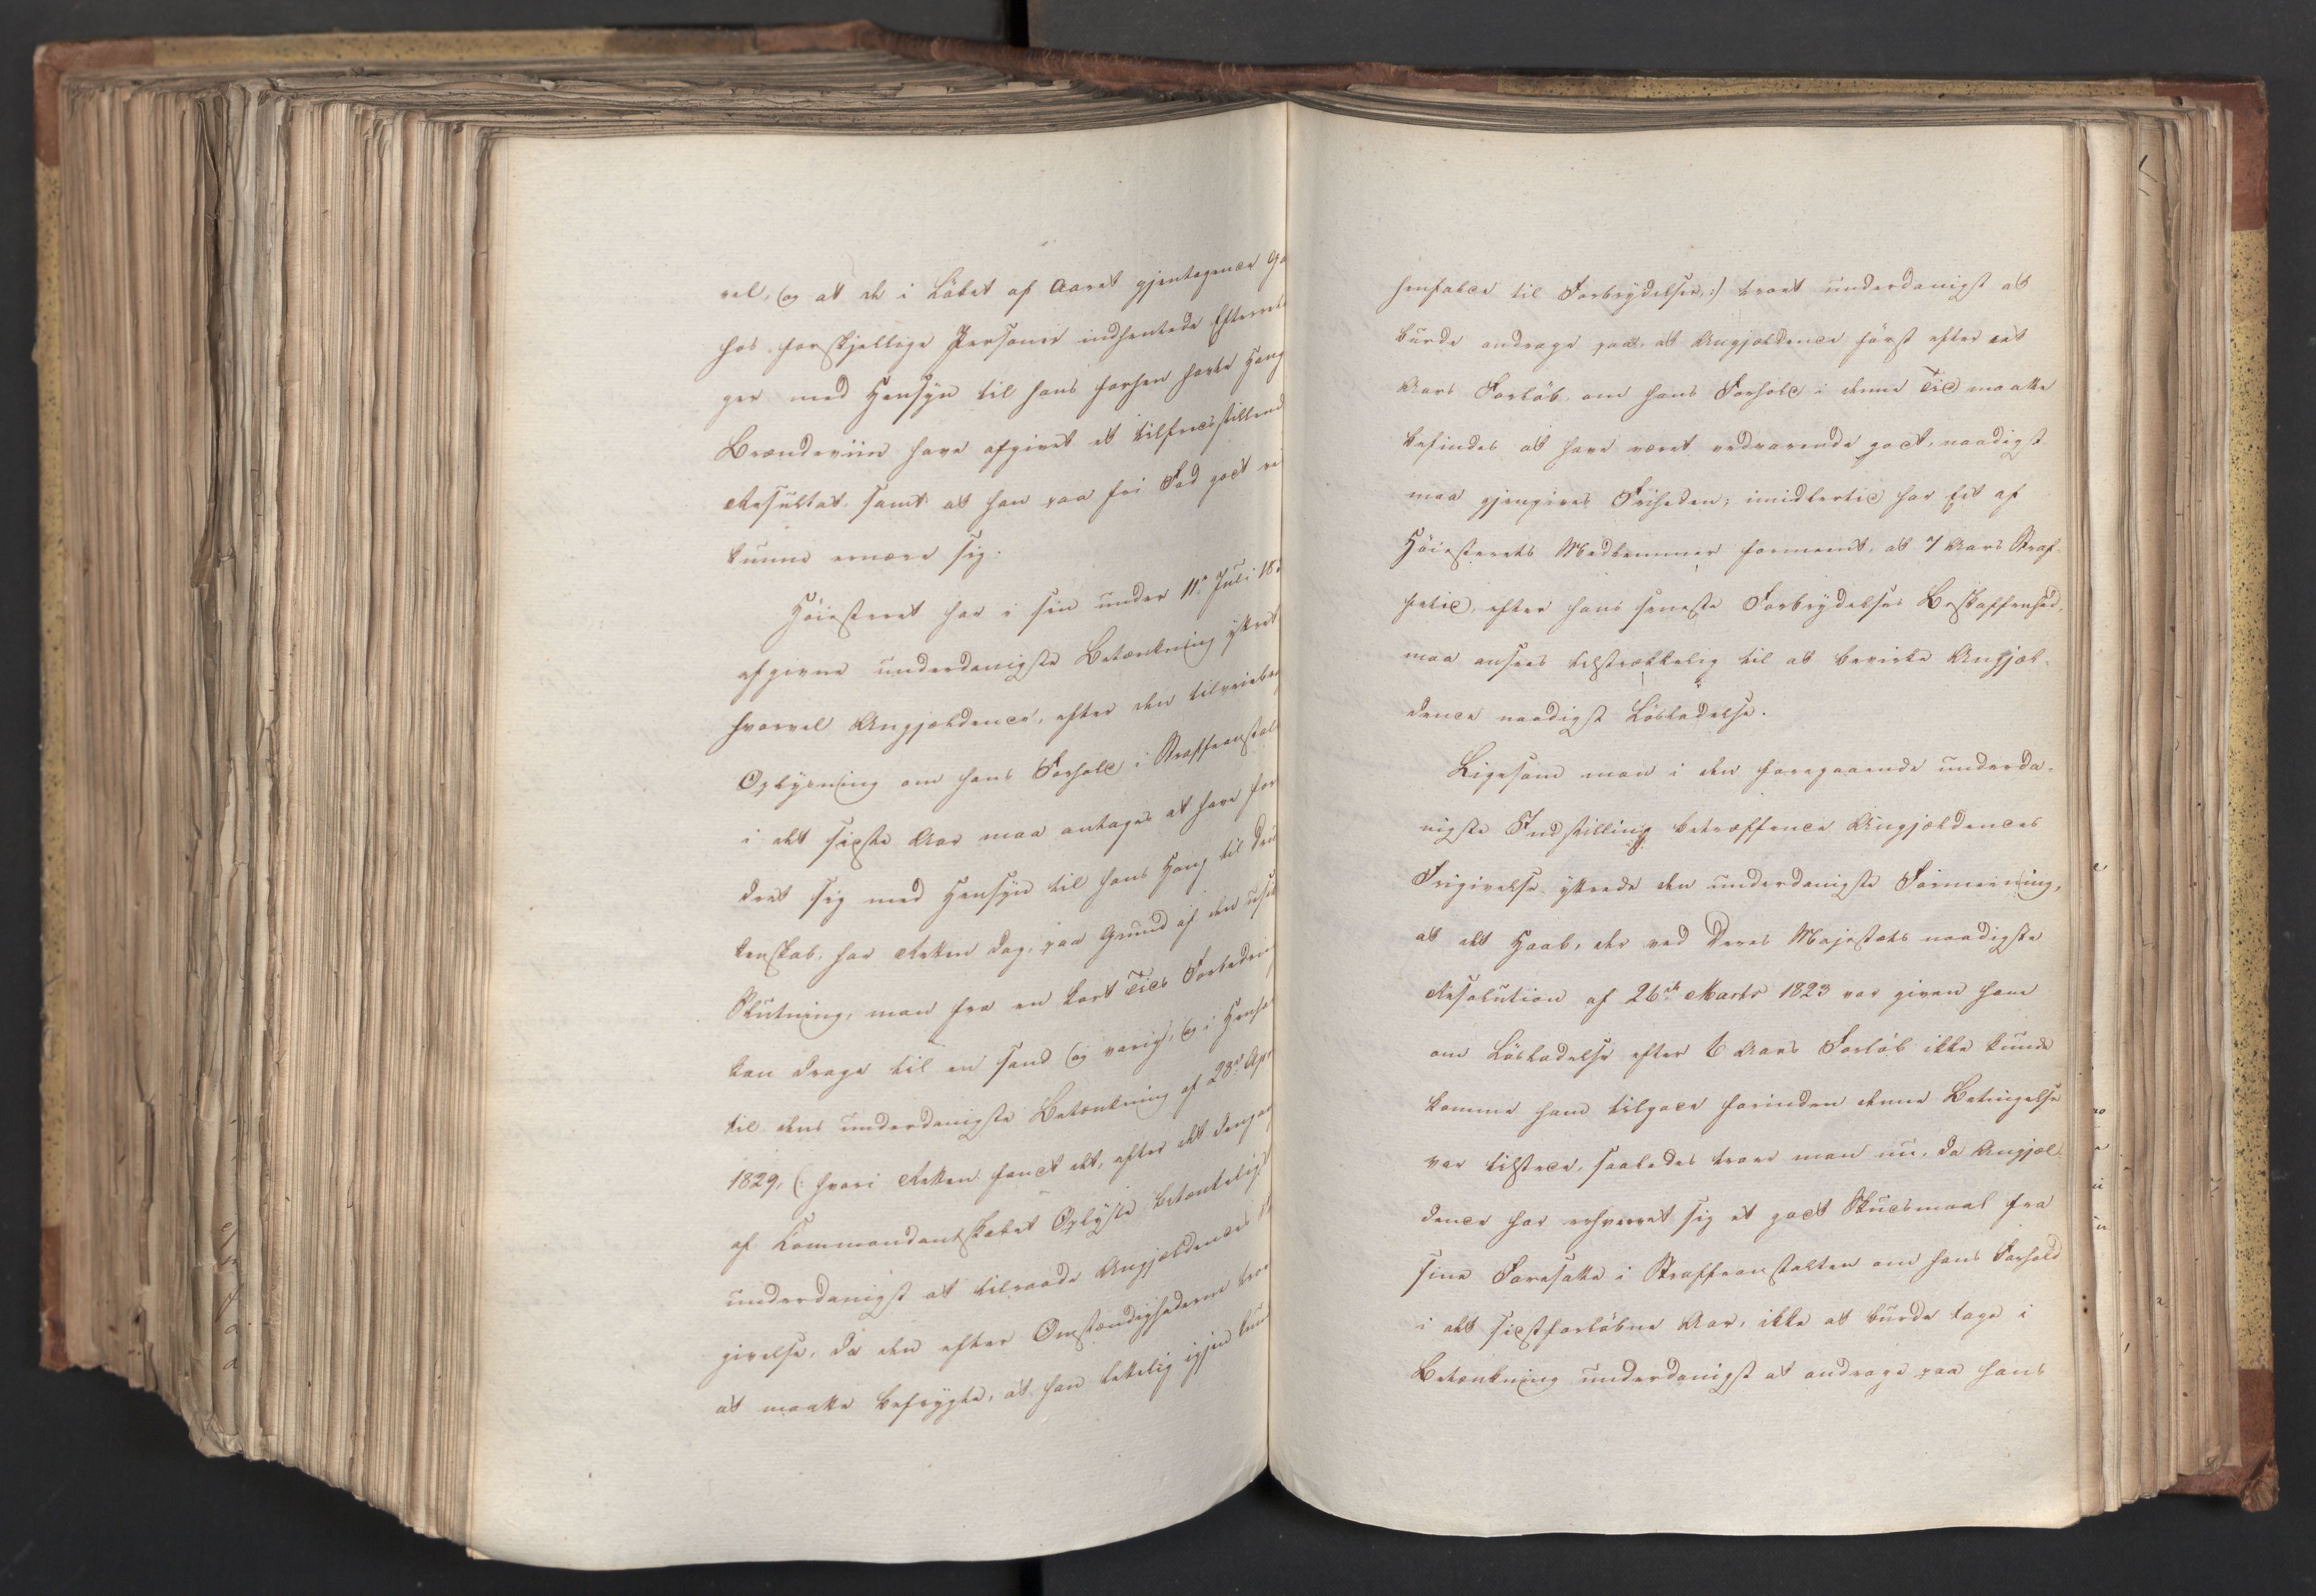 vel, og at de i Løbet af Aaret gjentagende Ga
hos forskjellige Personer indhentede Efterret
ger med Hensyn til hans forhen havte Hang
Brændeviin have afgivet et tilfredsstillend
Resultat, samt at han paa fri Fod godt vi
kunne ernære sig.
Høiesteret har i sin under 11te Juli 18
afgivne underdanigste Betænkning yttret
hvorvel Angjældende, efter den tilveiebra
Oplysning om hans Forhold i Straffeanstal
i det sidste Aar maa antages at have for
dret sig med Hensyn til hans Hang til Dru
kenskab, har Retten dog, paa Grund af den usik
Slutning, man fra en kort Tids Forbedrin
kan drage til en sand og varig, og i Henho
til dens underdanigste Betænkning af 28de Apr
1829, (: hvori Retten fandt det, efter det dengang
af Commandantskabet Oplyste betænkeligt
underdanigst at tilraade Angjældendes
givelse, da den efter Omstændighederne troe
at maatte befrygte, at han lettelig igjen kun
henfalde til Forbrydelser,:) troet underdanigst at
burde andrage paa, at Angjældende først efter eet
Aars Forløb, om hans Forhold i denne Tid maatte
befindes at have været vedvarende godt, naadigst
maa gjengives Friheden; imidlertid har Eet af
Høiesterets Medlemmer formeent, at 7 Aars Straf-
fetid, efter hans seneste Forbrydelses Beskaffenhed,
maa ansees tilstrækkelig til at bevirke Angjæl-
dende naadigst Løsladelse.
Ligesom man i den foregaaende underda-
nigste Indstilling betræffende Angjældendes
Frigivelse yttrede den underdanigste Formening,
at det Haab, der ved Deres Majestæts naadigste
Resolution af 26de Marts 1823 var given ham
om Løsladelse efter 6 Aars Forløb ikke kunde
komme ham tilgode forinden denne Betingelse
var tilstede, saaledes troer man nu, da Angjæl-
dende har erhvervet sig et godt Skudsmaal fra
sine Foresatte i Straffeanstalten om hans Forhold
i det sidstforløbne Aar, ikke at burde tage i
Betænkning underdanigst at andrage paa hans